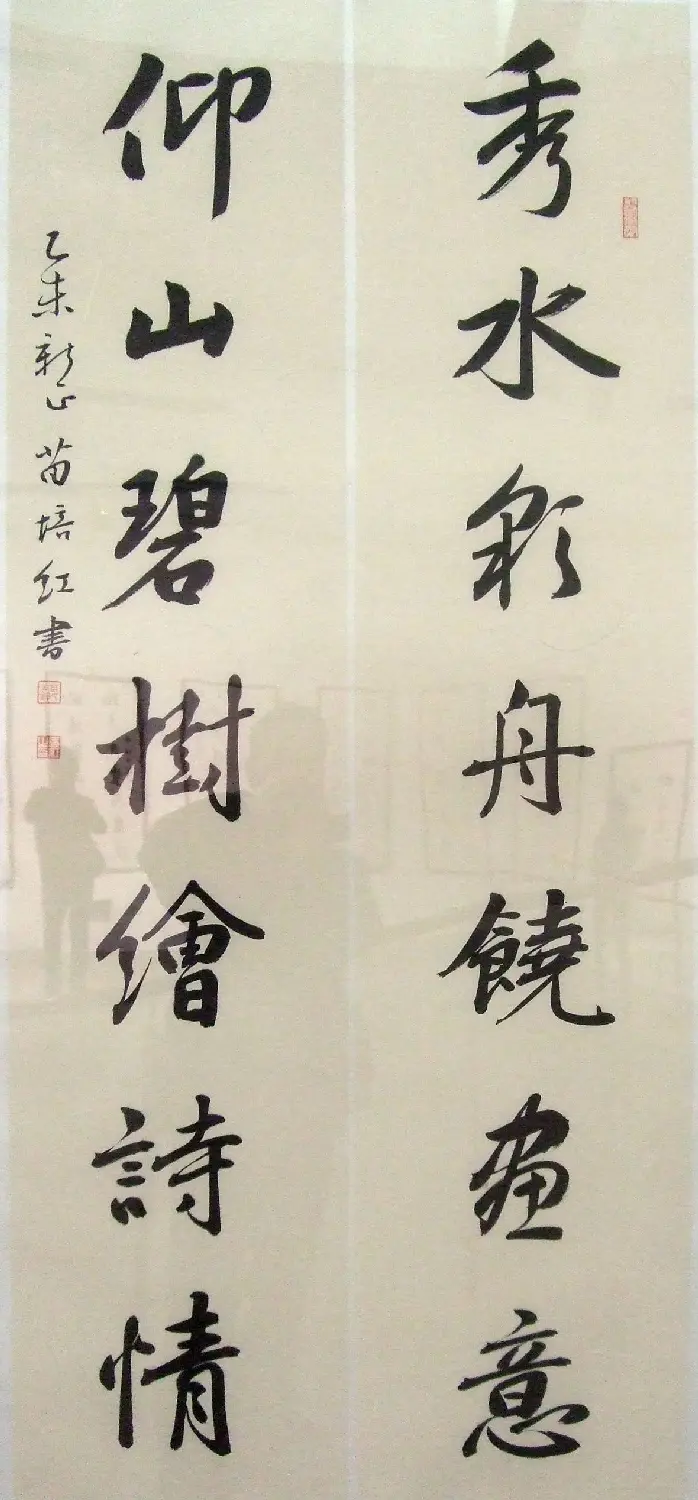 秀水彩舟饒畫意
仰山碧樹繪詩情
乙未新正苗培红書